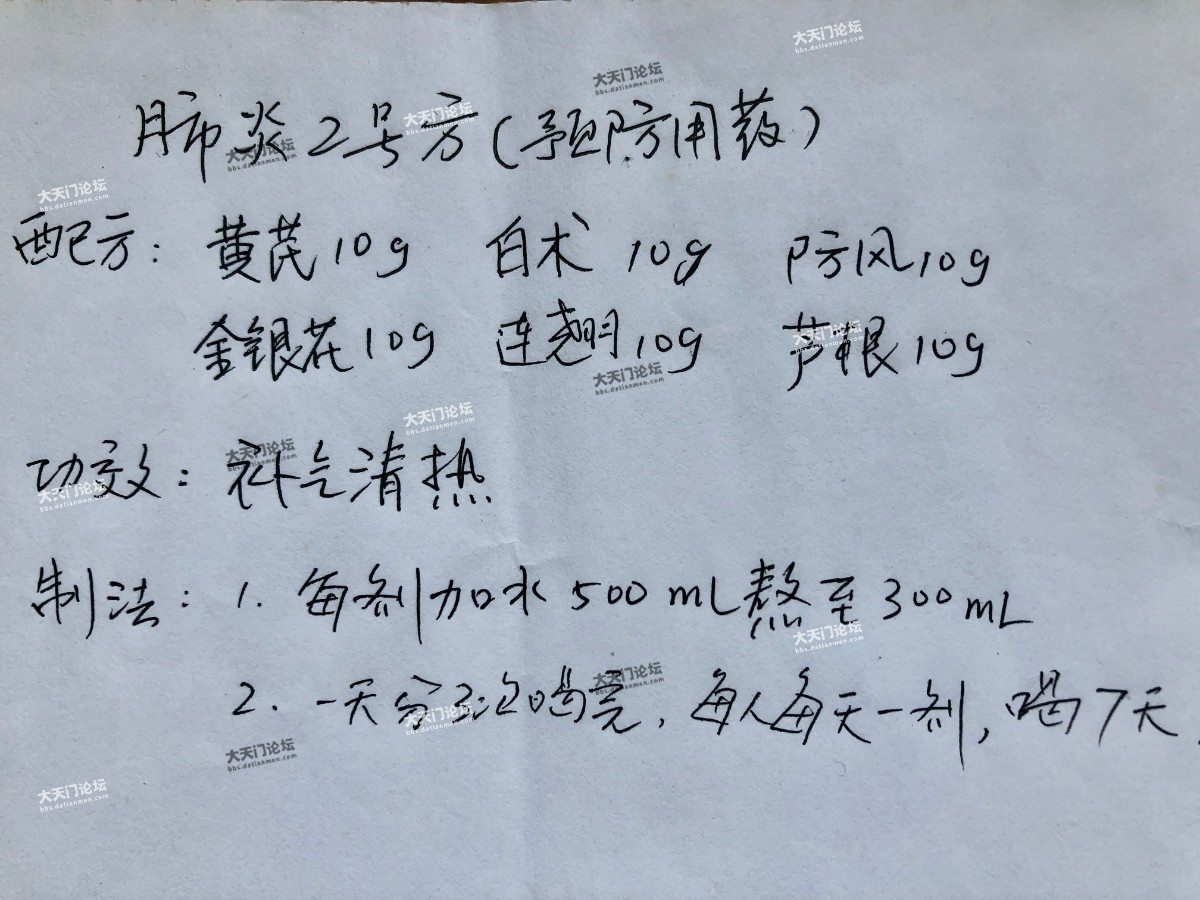 肺炎2号方(预防用药)
配方: 黄芪10g 白术 10g 防风10g
金银花10g 连翘10g 芦根10g
功效: 补气清热
制法: 1. 每剂加水500mL熬至300mL
2. 一天分3次喝完, 每人每天一剂, 喝7天.
大天门论坛
bbs.datianmen.com